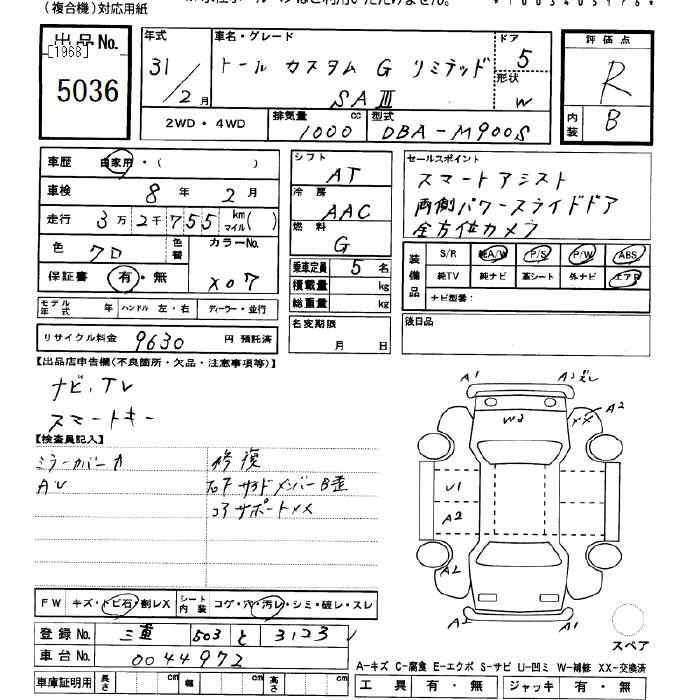 (複合機)対応用紙
出品No. [1968] 5036
年式 31/2月
車名・グレード トール カスタム G リミテッド SAⅢ
ドア 5
形状 W
評価点 R
内装 B
2WD・4WD
排気量 1000 cc
型式 DBA-M900S
車歴 自家用・( )
車検 8年 2月
走行 3万2千755 km マイル( )
色 クロ 色替 カラーNo. X07
保証書 有・無
モデル年式 年 ハンドル 左・右 ディーラー・並行
リサイクル料金 9630 円 預託済
シフト AT
冷房 AAC
燃料 G
乗車定員 5名
積載量 kg
総重量 kg
名変期限 月 日
セールスポイント
スマートアシスト
両側パワースライドドア
全方位カメラ
装備品 S/R 純A/W P/S P/W ABS
純TV 純ナビ 革シート 外ナビ エアB
ナビ型番:
後日品
【出品店申告欄(不良箇所・欠品・注意事項等)】
ナビ、TV
スマートキー
【検査員記入】
ミラーカバーカ
AU
修復
サイドメンバーB歪
コアサポートメス
A1
A3ズレ
W3
XX
A2
U1
A2
A2
A2
A1
FW キズ・トビ石・割レX シート内装 コゲ・穴・汚レ・シミ・破レ・スレ
登録No. 三重 503 と 3123
車台No. 0044972
車庫証明用 長さ cm 幅 cm 高さ cm
スペア
A-キズ C-腐食 E-エクボ S-サビ U-凹ミ W-補修 XX-交換済
工具 有・無 ジャッキ 有・無